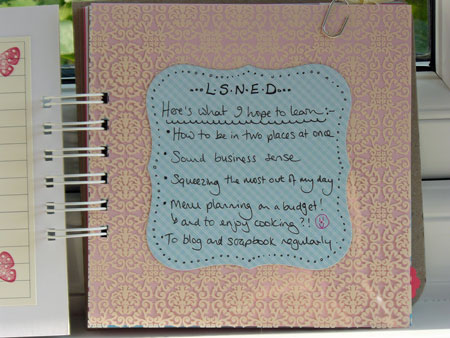 ...L.S.N.E.D...
Here's what I hope to learn:-
• How to be in two places at once
Sound business sense
• Squeezing the most out of my day
• Menu planning on a budget!
↳ and to enjoy cooking?!
• To blog and scrapbook regularly